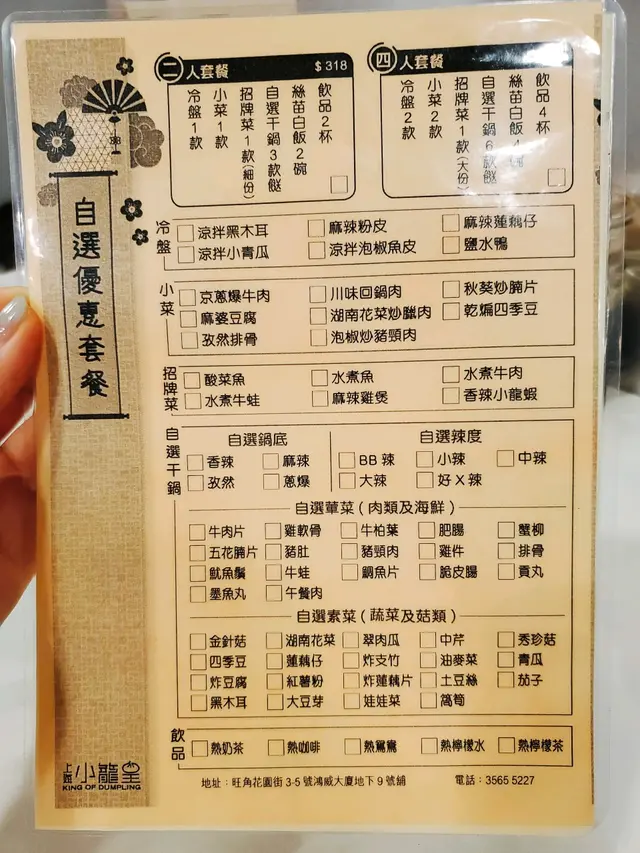 自選優惠套餐
二人套餐 $318
冷盤1款
小菜1款
招牌菜1款(細份)
自選干鍋3款餸
絲苗白飯2碗
飲品2杯
四人套餐
冷盤2款
小菜2款
招牌菜1款(大份)
自選干鍋6款餸
絲苗白飯4碗
飲品4杯
冷盤
涼拌黑木耳 麻辣粉皮 麻辣蓮藕仔
涼拌小青瓜 涼拌泡椒魚皮 鹽水鴨
小菜
京蔥爆牛肉 川味回鍋肉 秋葵炒腩片
麻婆豆腐 湖南花菜炒臘肉 乾煸四季豆
孜然排骨 泡椒炒豬頸肉
招牌菜
酸菜魚 水煮魚 水煮牛肉
水煮牛蛙 麻辣雞煲 香辣小龍蝦
自選干鍋
自選鍋底 自選辣度
香辣 麻辣 BB辣 小辣 中辣
孜然 蔥爆 大辣 好X辣
自選葷菜(肉類及海鮮)
牛肉片 雞軟骨 牛柏葉 肥腸 蟹柳
五花腩片 豬肚 豬頸肉 雞件 排骨
魷魚鬚 牛蛙 鯛魚片 脆皮腸 貢丸
墨魚丸 午餐肉
自選素菜(蔬菜及菇類)
金針菇 湖南花菜 翠肉瓜 中芹 秀珍菇
四季豆 蓮藕仔 炸支竹 油麥菜 青瓜
炸豆腐 紅薯粉 炸蓮藕片 土豆絲 茄子
黑木耳 大豆芽 娃娃菜 萵筍
飲品
熱奶茶 熱咖啡 熱鴛鴦 熱檸檬水 熱檸檬茶
小籠皇
KING OF DUMPLING
地址:旺角花園街3-5號鴻威大廈地下9號舖 電話:3565 5227